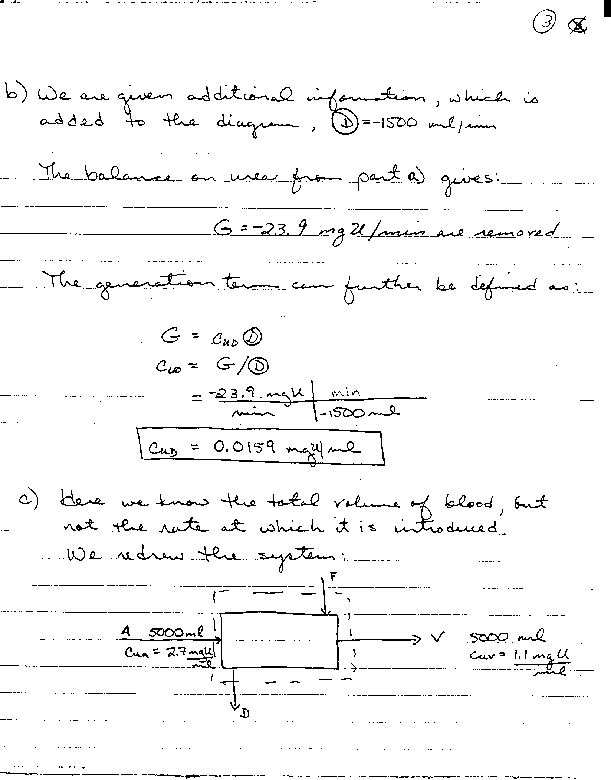 3
b) We are given additional information, which is
added to the diagram, Ⓓ = -1500 ml/min
The balance on urea from part a) gives:
G = -23.9 mg U/min are removed
The generation term can further be defined as:
G = CUD Ⓓ
CUD = G/Ⓓ
= -23.9 mg U | min
min | -1500 ml
CUD = 0.0159 mg U/ml
c) Here we know the total volume of blood, but
not the rate at which it is introduced.
We redrew the system:
F
A 5000 ml
CUA = 2.7 mg U
ml
V 5000 ml
CUV = 1.1 mg U
ml
D